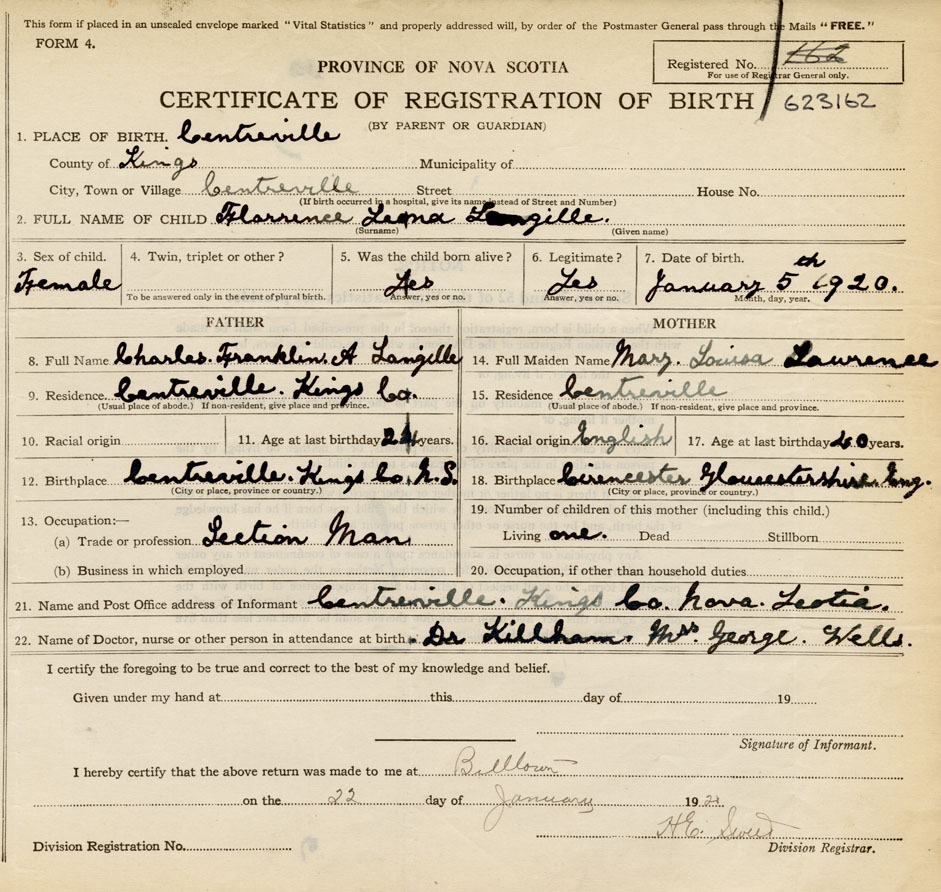 This form if placed in an unsealed envelope marked "Vital Statistics" and properly addressed will, by order of the Postmaster General pass through the Mails "FREE."
FORM 4.
Registered No. 162
For use of Registrar General only.
PROVINCE OF NOVA SCOTIA
CERTIFICATE OF REGISTRATION OF BIRTH 623162
(BY PARENT OR GUARDIAN)
1. PLACE OF BIRTH. Centreville
County of Kings Municipality of
City, Town or Village Centreville Street House No.
(If birth occurred in a hospital, give its name instead of Street and Number)
2. FULL NAME OF CHILD Florrence Leona Langille.
(Surname) (Given name)
3. Sex of child. 4. Twin, triplet or other? 5. Was the child born alive? 6. Legitimate? 7. Date of birth.
Female Yes Yes January 5th 1920.
To be answered only in the event of plural birth. Answer, yes or no. Answer, yes or no. Month, day, year.
FATHER MOTHER
8. Full Name Charles. Franklin. A Langille 14. Full Maiden Name Mary. Louisa Lawrence
9. Residence Centreville. Kings Co. 15. Residence Centreville
(Usual place of abode.) If non-resident, give place and province. (Usual place of abode.) If non-resident, give place and province.
10. Racial origin 11. Age at last birthday 24 years. 16. Racial origin English 17. Age at last birthday 40 years.
12. Birthplace Centreville. Kings Co. N.S. 18. Birthplace Cirencester Gloucestershire. Eng.
(City or place, province or country.) (City or place, province or country.)
13. Occupation:— 19. Number of children of this mother (including this child.)
(a) Trade or profession Section Man Living one. Dead Stillborn
(b) Business in which employed 20. Occupation, if other than household duties
21. Name and Post Office address of Informant Centreville. Kings Co. Nova. Scotia.
22. Name of Doctor, nurse or other person in attendance at birth. Dr Killham. Mrs George. Wells.
I certify the foregoing to be true and correct to the best of my knowledge and belief.
Given under my hand at this day of 19
Signature of Informant.
I hereby certify that the above return was made to me at Billtown
on the 22 day of January 19
H.E.
Division Registration No. Division Registrar.